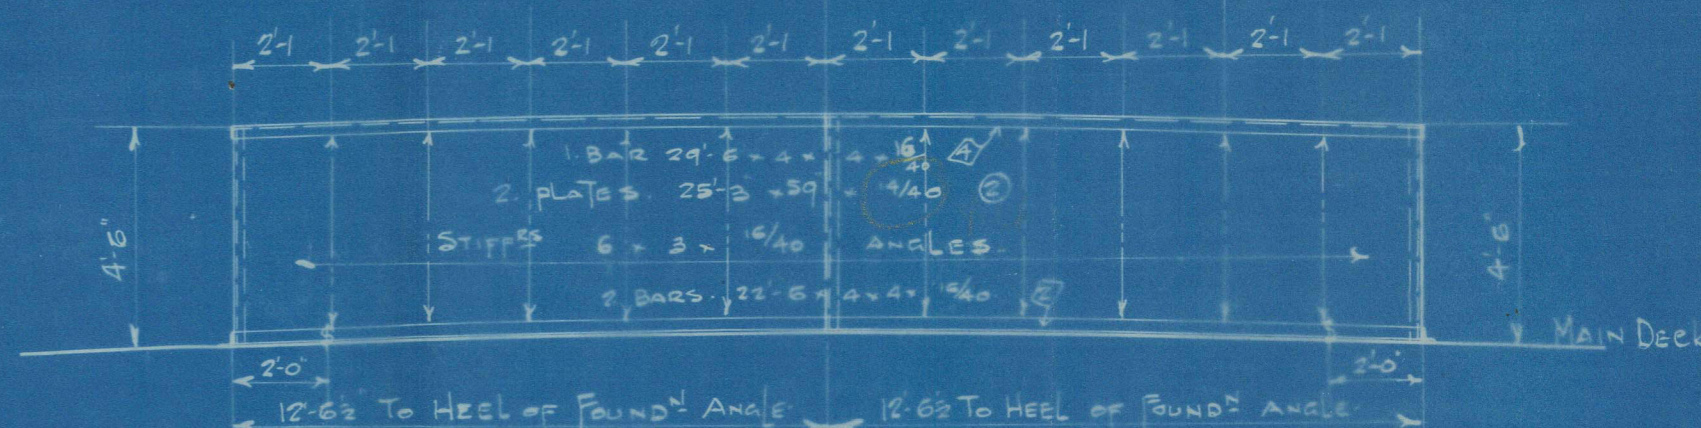 2'-1 2'-1 2'-1 2'-1 2'-1 2'-1 2'-1 2'-1 2'-1 2'-1 2'-1 2'-1
1. BAR 29'-6 × 4 × 4 × 16/40 4
2. PLATES. 25'-3 × 59" × 14/40 2
STIFFRS 6 × 3 × 16/40 ANGLES.
2. BARS. 22'-6 × 4 × 4 × 16/40 2
4'-6"
4'-6"
MAIN DECK
2'-0"
2'-0"
12'-6½ TO HEEL OF FOUNDN ANGLE 12'-6½ TO HEEL OF FOUNDN ANGLE